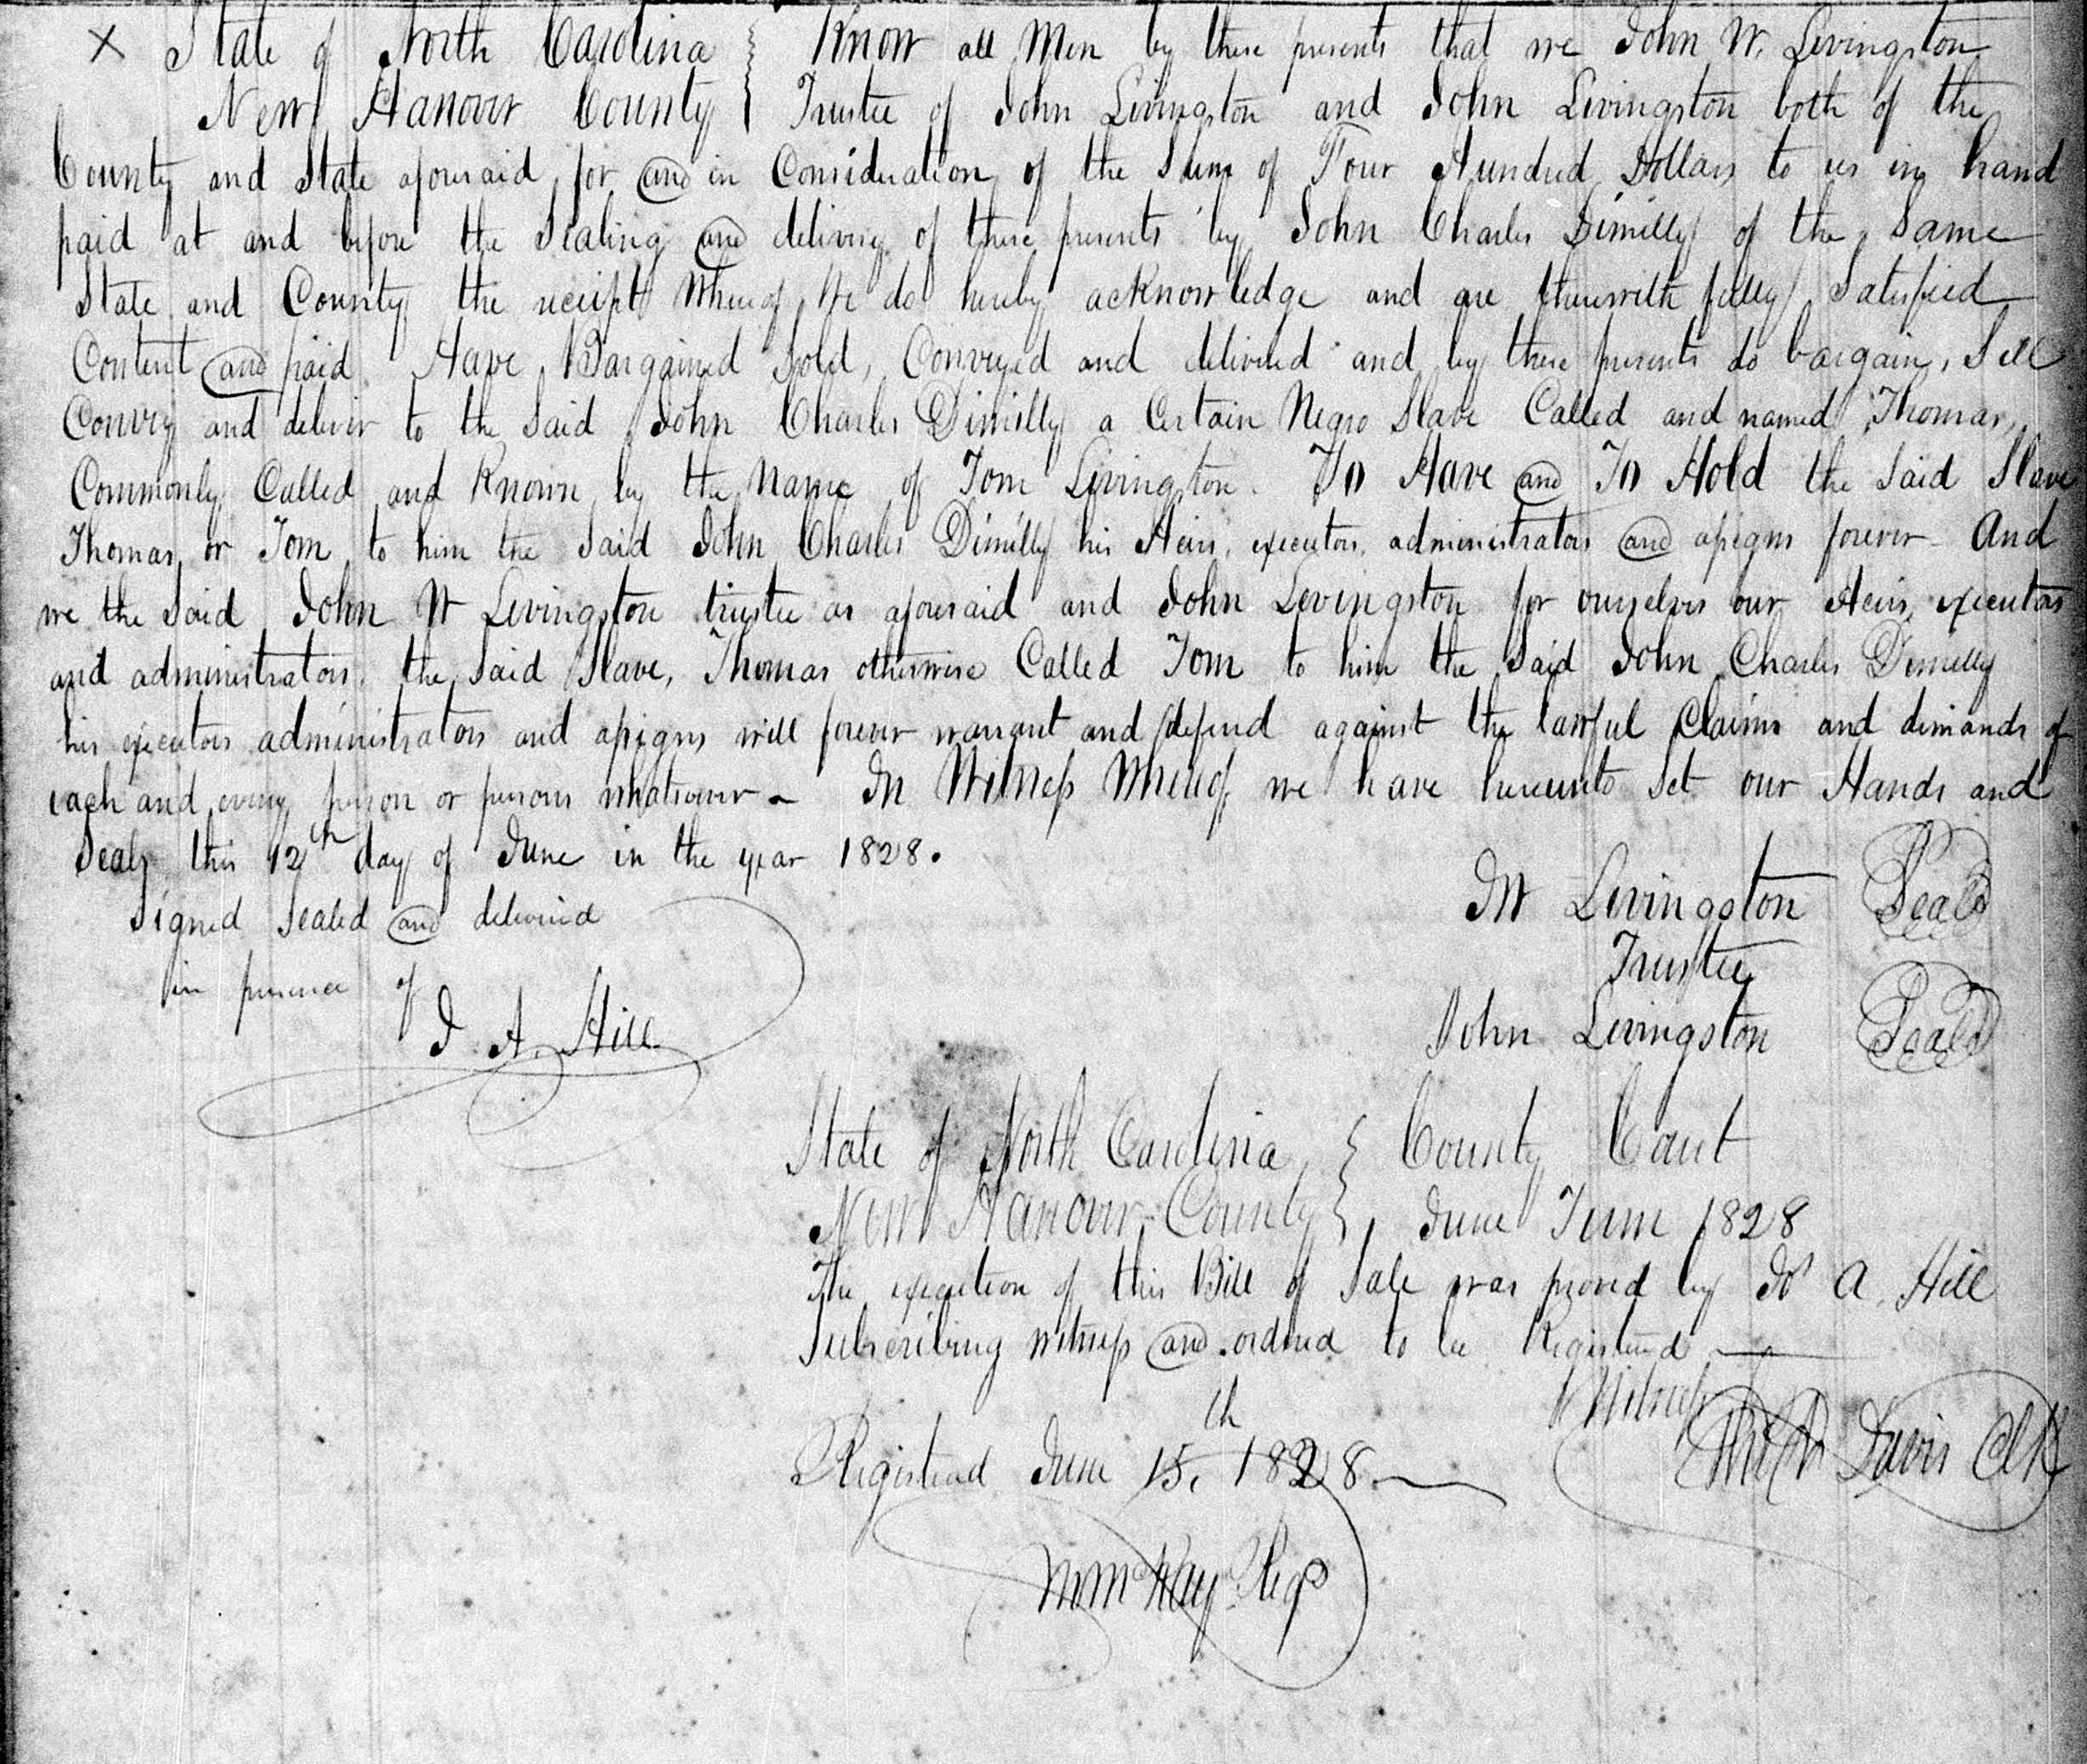 X State of North Carolina } Know all Men by these presents that we John W. Livingston
New Hanover County } Trustee of John Livingston and John Livingston both of the
County and State aforesaid for and in Consideration of the Sum of Four Hundred Dollars to us in hand
paid at and before the Sealing and delivery of these presents by John Charles Dimilly of the Same
State and County the receipt Whereof We do hereby acknowledge and are therewith fully Satisfied
Content and paid Have Bargained Sold, Conveyed and delivered and by these presents do bargain, Sell
Convey and deliver to the Said John Charles Dimilly a Certain Negro Slave Called and named Thomas,
Commonly Called and Known by the Name of Tom Livingston. To Have and To Hold the Said Slave
Thomas or Tom to him the Said John Charles Dimilly his Heirs, executors, administrators and assigns forever And
we the Said John W Livingston trustee as aforesaid and John Livingston for ourselves our Heirs, executors
and administrators, the Said Slave, Thomas otherwise Called Tom to him the Said John Charles Dimilly
his executors administrators and assigns will forever warrant and defend against the lawful Claims and demands of
each and every person or persons whatsoever - In Witness Whereof we have hereunto Set our Hands and
Seals this 12th day of June in the year 1828.
Signed Sealed and delivered
in presence of
J W Livingston Seal
Trustee
J A. Hill
John Livingston Seal
State of North Carolina } County Court
New Hanover County } June Term 1828
The execution of this Bill of Sale was proved by Jo A. Hill
Subscribing Witness and ordered to be Registered
Witness
Davis Clk
Registered June 15th, 1828.
Reg